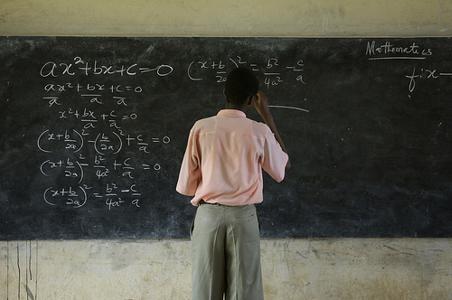 ax² + bx + c = 0
ax²/a + bx/a + c/a = 0
x² + bx/a + c/a = 0
(x + b/2a)² - (b/2a)² + c/a = 0
(x + b/2a)² - b²/4a² + c/a = 0
(x + b/2a)² = b²/4a² - c/a
(x + b/2a)² = b²/4a² - c/a
Mathematics
f: x